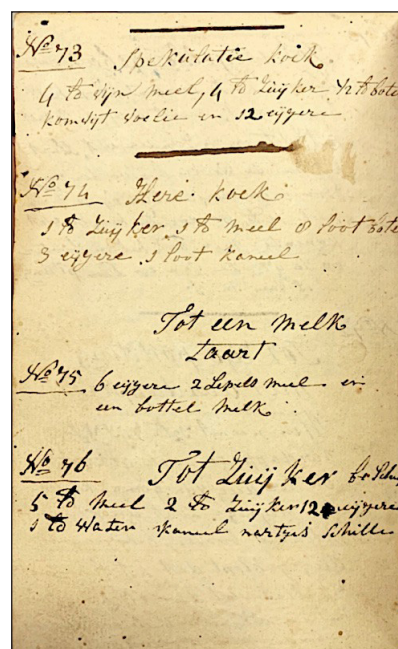 No 73 Spekulatie koek
4 lb wijn meel, 4 lb Zuijker 1/2 lb bote
komwijt voelie en 12 eijgere
No 74 Here koek
1 lb Zuijker, 1 lb meel 8 loot bote
3 eijgere 1 loot kaneel
Tot een melk
taart
No 75 6 eijgere 2 Lepels meel en
een bottel melk
No 76 Tot Zuijker
5 lb meel 2 lb Zuijker 12 eijgere
1 lb Water kaneel Schille